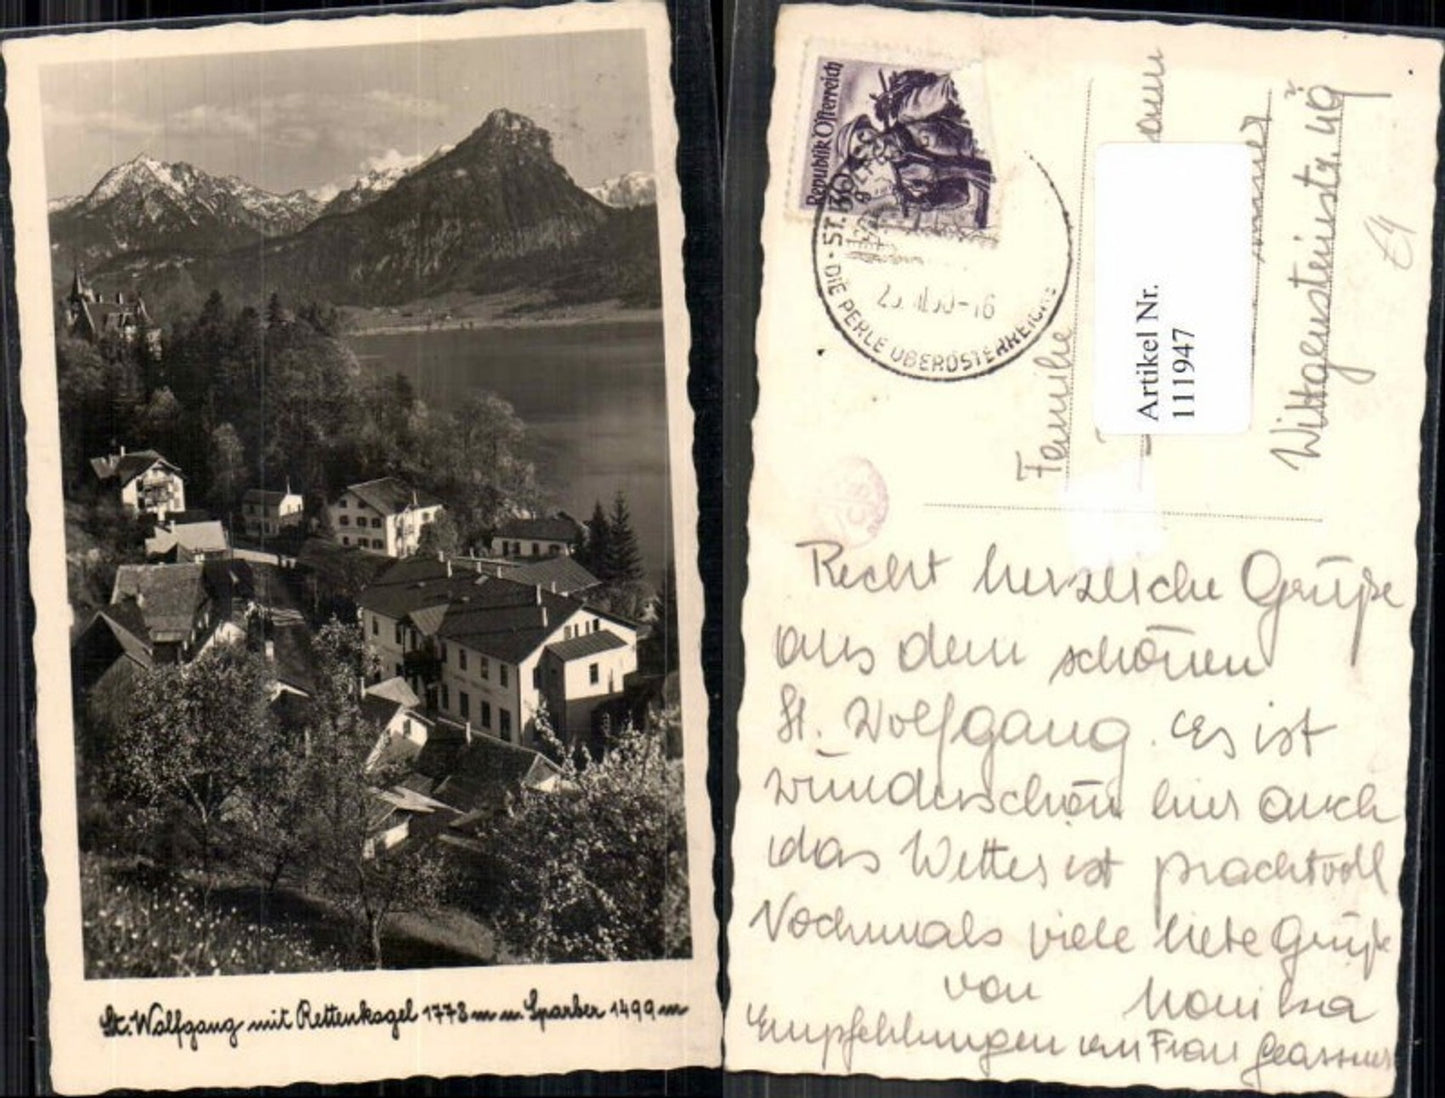 St. Wolfgang mit Rettenkogel 1778 m u. Sparber 1499 m
Republik Österreich
ST.
DIE PERLE OBERÖSTERREICHS
Familie
Wittgensteinstr. 49
Artikel Nr.
111947
Recht herzliche Grüße
aus dem schönen
St. Wolfgang. Es ist
wunderschön hier auch
das Wetter ist prachtvoll
Nochmals viele liebe Grüße
von Monika
Empfehlungen von Frau